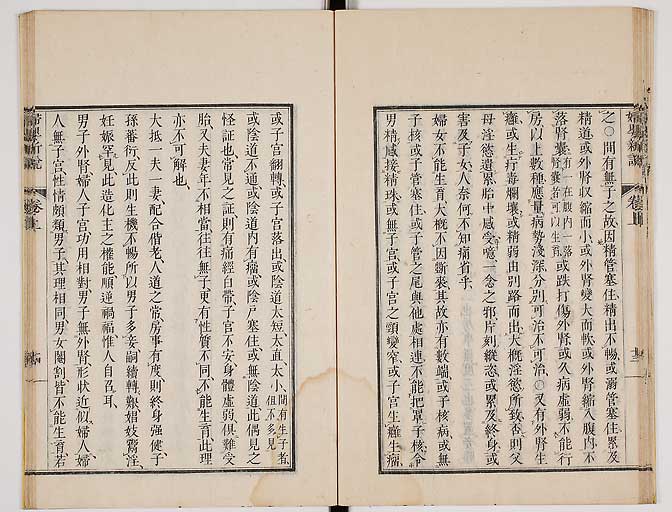 之○間有無子之故因精管塞住精出不暢或溺管塞住累及
精道或外腎収縮而小或外腎變大而軟或外腎縮入腹内不
落腎囊有一在腹内一落腎囊者可以生育或跌打傷外腎或久病虛弱不能行
房以上數種應量病勢淺深分别可治不可治○又有外腎生
癰或生疔毒爛壞或精弱由别路而出大概淫慾所致否則父
母淫慾遺累胎中感受噫一念之邪片刻縱恣或累及終身或
害及子女人奈何不知痛省乎
婦女不能生育大概不因斲喪其故亦有數端或子核病或無
子核或子管塞住或子管之尾與他處相連不能把罩子核令
男精感接精珠或無子宫或子宫之頸變窄或子宫生癰生瘤
或子宫翻轉或子宫落出或陰道太短太直太小間有生子者但不多見
或陰道不通或陰道内有瘤或陰戶塞住或無陰道此偶見之
怪証也常見之証則有痛經白帶子宫不安身體虛弱俱難受
胎又夫妻年不相當往往無子更有性質不同不能生育此理
亦不可解也
大抵一夫一妻配合偕老人道之常房事有度則終身强健子
孫蕃衍反此則生機不暢所以男子多妾嗣續轉艱娼妓鬻淫
妊娠罕見此造化主之權能順逆禍福惟人自召耳
男子外腎婦人子宫功用相對男子無外腎形狀近似婦人婦
人無子宫性情頗類男子其理相同男女閹割皆不能生育若
婦嬰新說
卷上